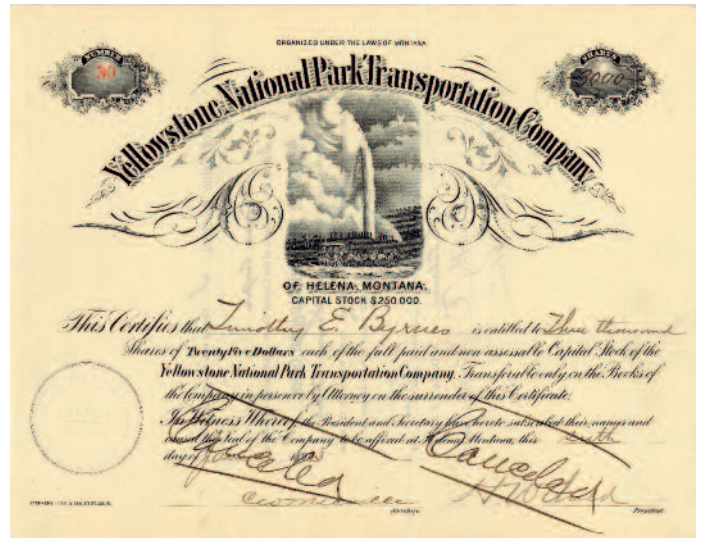 ORGANIZED UNDER THE LAWS OF MONTANA.
NUMBER
30
SHARES
3000
Yellowstone National Park Transportation Company,
OF HELENA, MONTANA.
CAPITAL STOCK $250.000.
This Certifies that Timothy E. Byrnes is entitled to Three thousand
Shares of Twenty Five Dollars each of the full paid and non assessable Capital Stock of the
Yellowstone National Park Transportation Company, Transferable only on the Books of
the Company in person or by Attorney on the surrender of this Certificate.
In Witness Whereof the President and Secretary have hereto subscribed their names and
caused the Seal of the Company to be affixed at Helena, Montana, this
day of
Canceled
Secretary.
President.